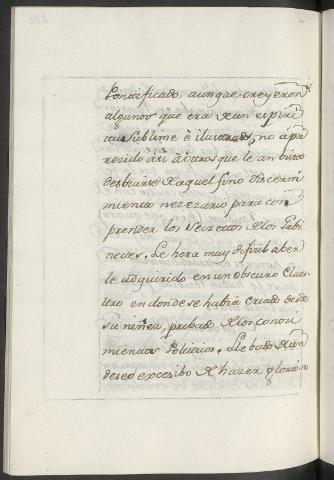 Pontificado, aunque creyeron
algunos que era de un espiri
tu sublime è ilustrado, no à pa
rezido asi à òtros que le an bisto
desbiarse de aquel fino discerni
miento nezezario para com
prender los secretos de los Gabi
netes. Le hera muy dificil aber
le adquirido en un obscuro Claus
tro en donde se habia criado desde
su niñez, pribado de los conosi
mientos Politicos. Llebado de un
deseo excesibo de hazer glorioso